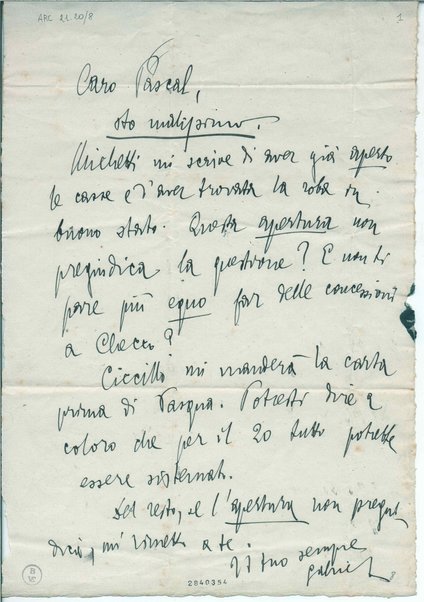 ARC 21.20/8
1
Caro Pascal,
sto malissimo.
Michetti mi scrive di aver già aperto
le casse e d'aver trovata la roba in
buono stato. Questa apertura non
pregiudica la questione? E non ti
pare più equo far delle concessioni
a Checco?
Ciccillo mi manderà la carta
prima di Pasqua. Potresti dire a
coloro che per il 20 tutto potrebbe
essere sistemato.
Del resto, se l'apertura non pregiu-
dica, mi rimetto a te.
Il tuo sempre
Gabriel
B
VE
2840354
8